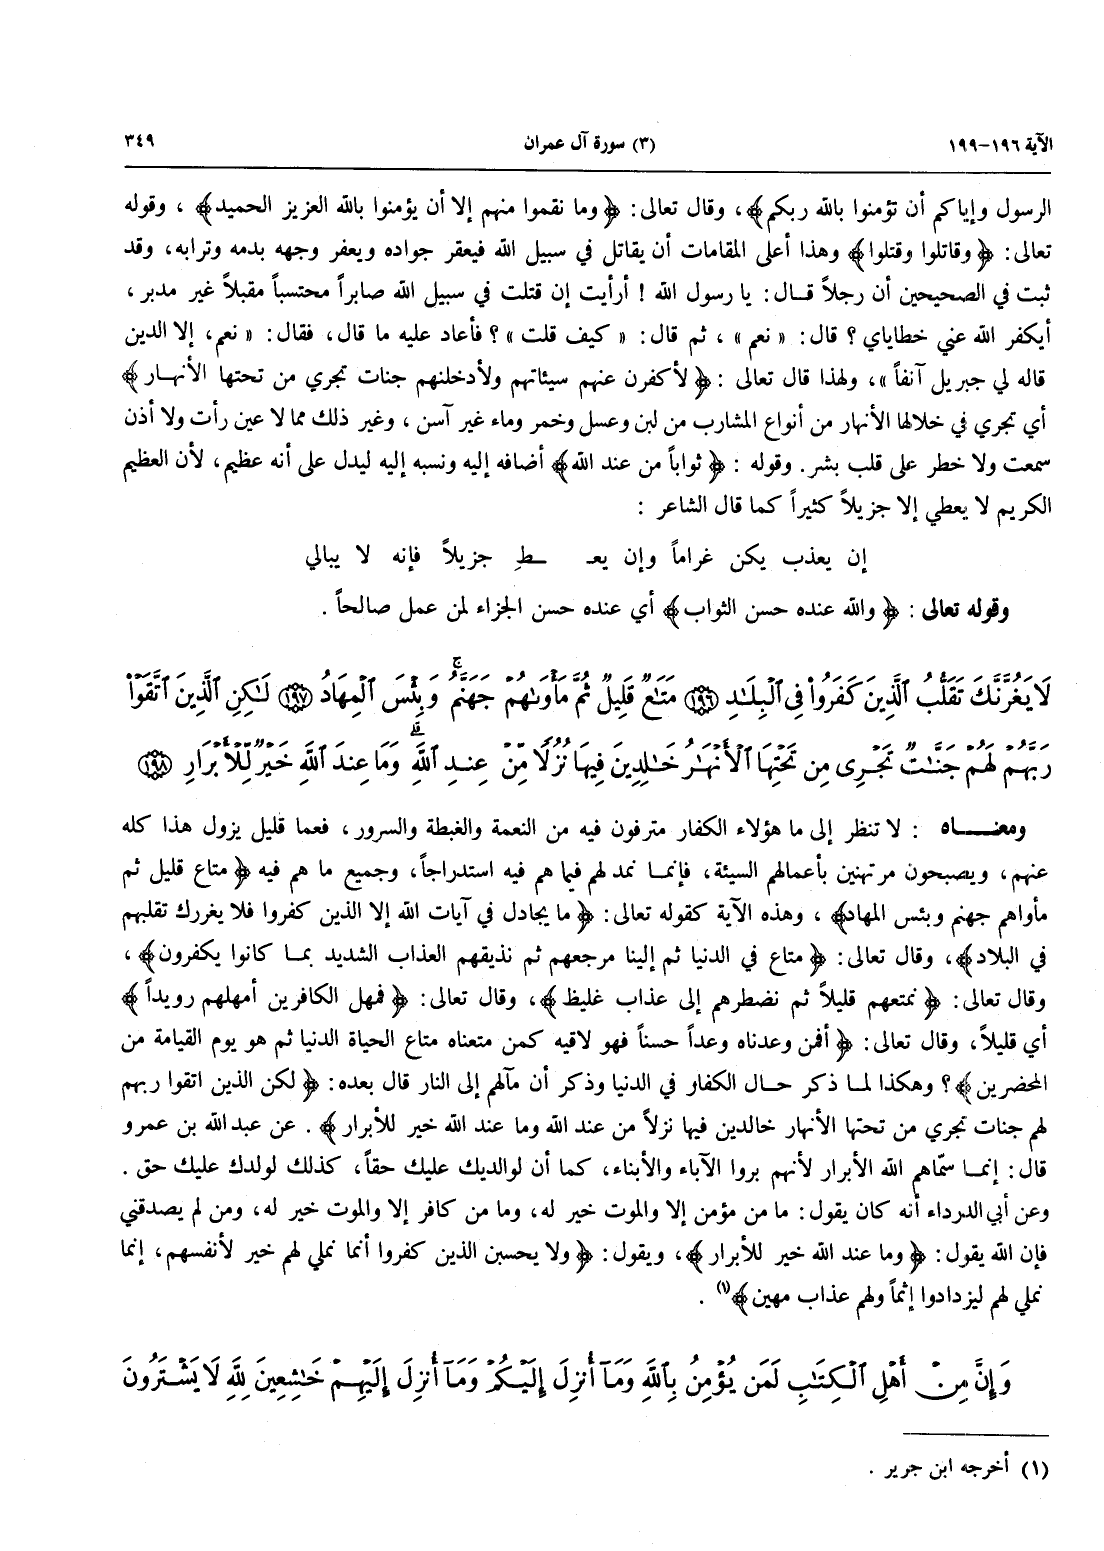 الآية ١٩٦-١٩٩ (٣) سورة آل عمران ٣٤٩
الرسول وإياكم أن تؤمنوا بالله ربكم﴾، وقال تعالى: ﴿وما نقموا منهم إلا أن يؤمنوا بالله العزيز الحميد﴾ ، وقوله
تعالى: ﴿وقاتلوا وقتلوا﴾ وهذا أعلى المقامات أن يقاتل في سبيل الله فيعقر جواده ويعفر وجهه بدمه وترابه، وقد
ثبت في الصحيحين أن رجلاً قال: يا رسول الله ! أرأيت إن قتلت في سبيل الله صابراً محتسباً مقبلاً غير مدبر ،
أيكفر الله عني خطاياي ؟ قال: « نعم » ، ثم قال: « كيف قلت » ؟ فأعاد عليه ما قال، فقال: « نعم، إلا الدين
قاله لي جبريل آنفاً »، ولهذا قال تعالى : ﴿لأكفرن عنهم سيئاتهم ولأدخلنهم جنات تجري من تحتها الأنهار﴾
أي تجري في خلالها الأنهار من أنواع المشارب من لبن وعسل وخمر وماء غير آسن ، وغير ذلك مما لا عين رأت ولا أذن
سمعت ولا خطر على قلب بشر. وقوله : ﴿ثواباً من عند الله﴾ أضافه إليه ونسبه إليه ليدل على أنه عظيم، لأن العظيم
الكريم لا يعطي إلا جزيلاً كثيراً كما قال الشاعر :
إن يعذب يكن غراماً وإن يعـ ـطِ جزيلاً فإنه لا يبالي
وقوله تعالى : ﴿والله عنده حسن الثواب﴾ أي عنده حسن الجزاء لمن عمل صالحاً .
لَا يَغُرَّنَّكَ تَقَلُّبُ ٱلَّذِينَ كَفَرُوا۟ فِى ٱلْبِلَـٰدِ ١٩٦ مَتَـٰعٌ قَلِيلٌ ثُمَّ مَأْوَىٰهُمْ جَهَنَّمُ ۚ وَبِئْسَ ٱلْمِهَادُ ١٩٧ لَـٰكِنِ ٱلَّذِينَ ٱتَّقَوْا۟
رَبَّهُمْ لَهُمْ جَنَّـٰتٌ تَجْرِى مِن تَحْتِهَا ٱلْأَنْهَـٰرُ خَـٰلِدِينَ فِيهَا نُزُلًا مِّنْ عِندِ ٱللَّهِ ۗ وَمَا عِندَ ٱللَّهِ خَيْرٌ لِّلْأَبْرَارِ ١٩٨
ومعنــاه : لا تنظر إلى ما هؤلاء الكفار مترفون فيه من النعمة والغبطة والسرور، فعما قليل يزول هذا كله
عنهم، ويصبحون مرتهنين بأعمالهم السيئة، فإنما نمد لهم فيما هم فيه استدراجاً، وجميع ما هم فيه ﴿متاع قليل ثم
مأواهم جهنم وبئس المهاد﴾ ، وهذه الآية كقوله تعالى: ﴿ما يجادل في آيات الله إلا الذين كفروا فلا يغررك تقلبهم
في البلاد﴾، وقال تعالى: ﴿متاع في الدنيا ثم إلينا مرجعهم ثم نذيقهم العذاب الشديد بما كانوا يكفرون﴾ ،
وقال تعالى: ﴿نمتعهم قليلاً ثم نضطرهم إلى عذاب غليظ﴾، وقال تعالى: ﴿فمهل الكافرين أمهلهم رويداً﴾
أي قليلاً، وقال تعالى: ﴿أفمن وعدناه وعداً حسناً فهو لاقيه كمن متعناه متاع الحياة الدنيا ثم هو يوم القيامة من
المحضرين﴾؟ وهكذا لما ذكر حال الكفار في الدنيا وذكر أن مآلهم إلى النار قال بعده: ﴿لكن الذين اتقوا ربهم
لهم جنات تجري من تحتها الأنهار خالدين فيها نزلاً من عند الله وما عند الله خير للأبرار﴾ . عن عبد الله بن عمرو
قال: إنما سمّاهم الله الأبرار لأنهم بروا الآباء والأبناء، كما أن لوالديك عليك حقاً، كذلك لولدك عليك حق .
وعن أبي الدرداء أنه كان يقول: ما من مؤمن إلا والموت خير له، وما من كافر إلا والموت خير له، ومن لم يصدقني
فإن الله يقول: ﴿وما عند الله خير للأبرار﴾، ويقول: ﴿ولا يحسبن الذين كفروا أنما نملي لهم خير لأنفسهم، إنما
نملي لهم ليزدادوا إثماً ولهم عذاب مهين﴾(١) .
وَإِنَّ مِنْ أَهْلِ ٱلْكِتَـٰبِ لَمَن يُؤْمِنُ بِٱللَّهِ وَمَآ أُنزِلَ إِلَيْكُمْ وَمَآ أُنزِلَ إِلَيْهِمْ خَـٰشِعِينَ لِلَّهِ لَا يَشْتَرُونَ
(١) أخرجه ابن جرير .